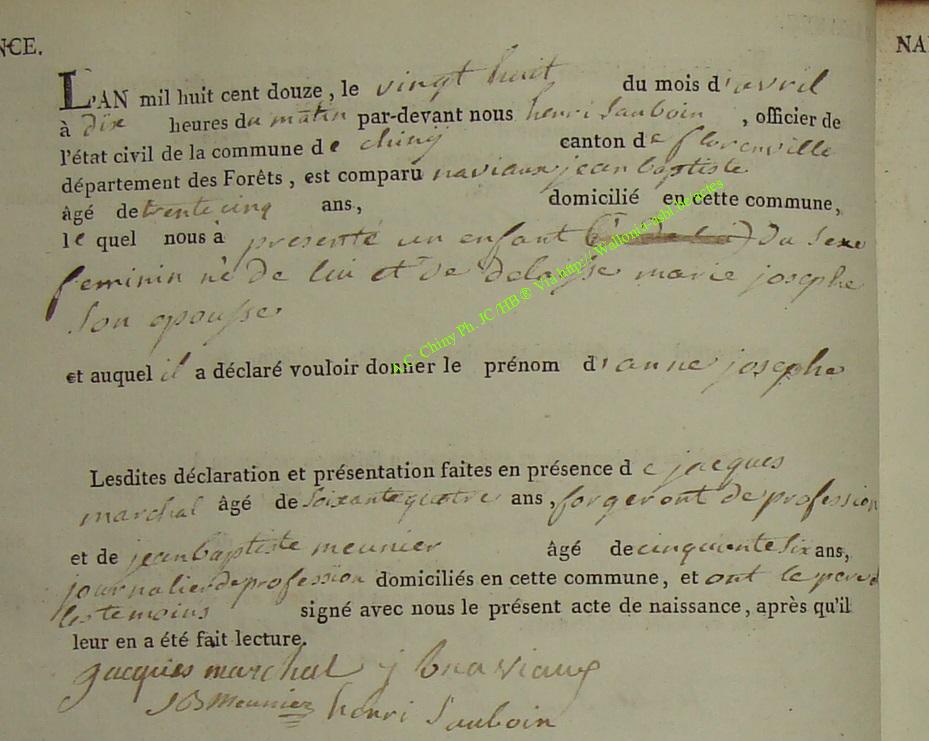 NCE.
NA
L'AN mil huit cent douze, le vingt huit du mois d'avril
à dix heures du matin par-devant nous henri Sauboin, officier de
l'état civil de la commune de chinÿ canton de florenville
département des Forêts, est comparu naviaux jean baptiste
âgé de trente cinq ans, domicilié en cette commune,
le quel nous à presenté un enfant du sexe
feminin né de lui et de delaisse marie josephe
Son epousse
et auquel il a déclaré vouloir donner le prénom d'anne josephe
Lesdites déclaration et présentation faites en présence de jacques
marchal âgé de soixante quatre ans, forgeront de profession
et de jean baptiste meunier âgé de cinquente six ans,
journalier de profession domiciliés en cette commune, et ont le pere et
les temoins signé avec nous le présent acte de naissance, après qu'il
leur en a été fait lecture.
jacques marchal j b naviaux
JB Meunier henri Sauboin
E.C. Chiny Ph. JC /HB ® Via http://Wallonia-asbl de actes